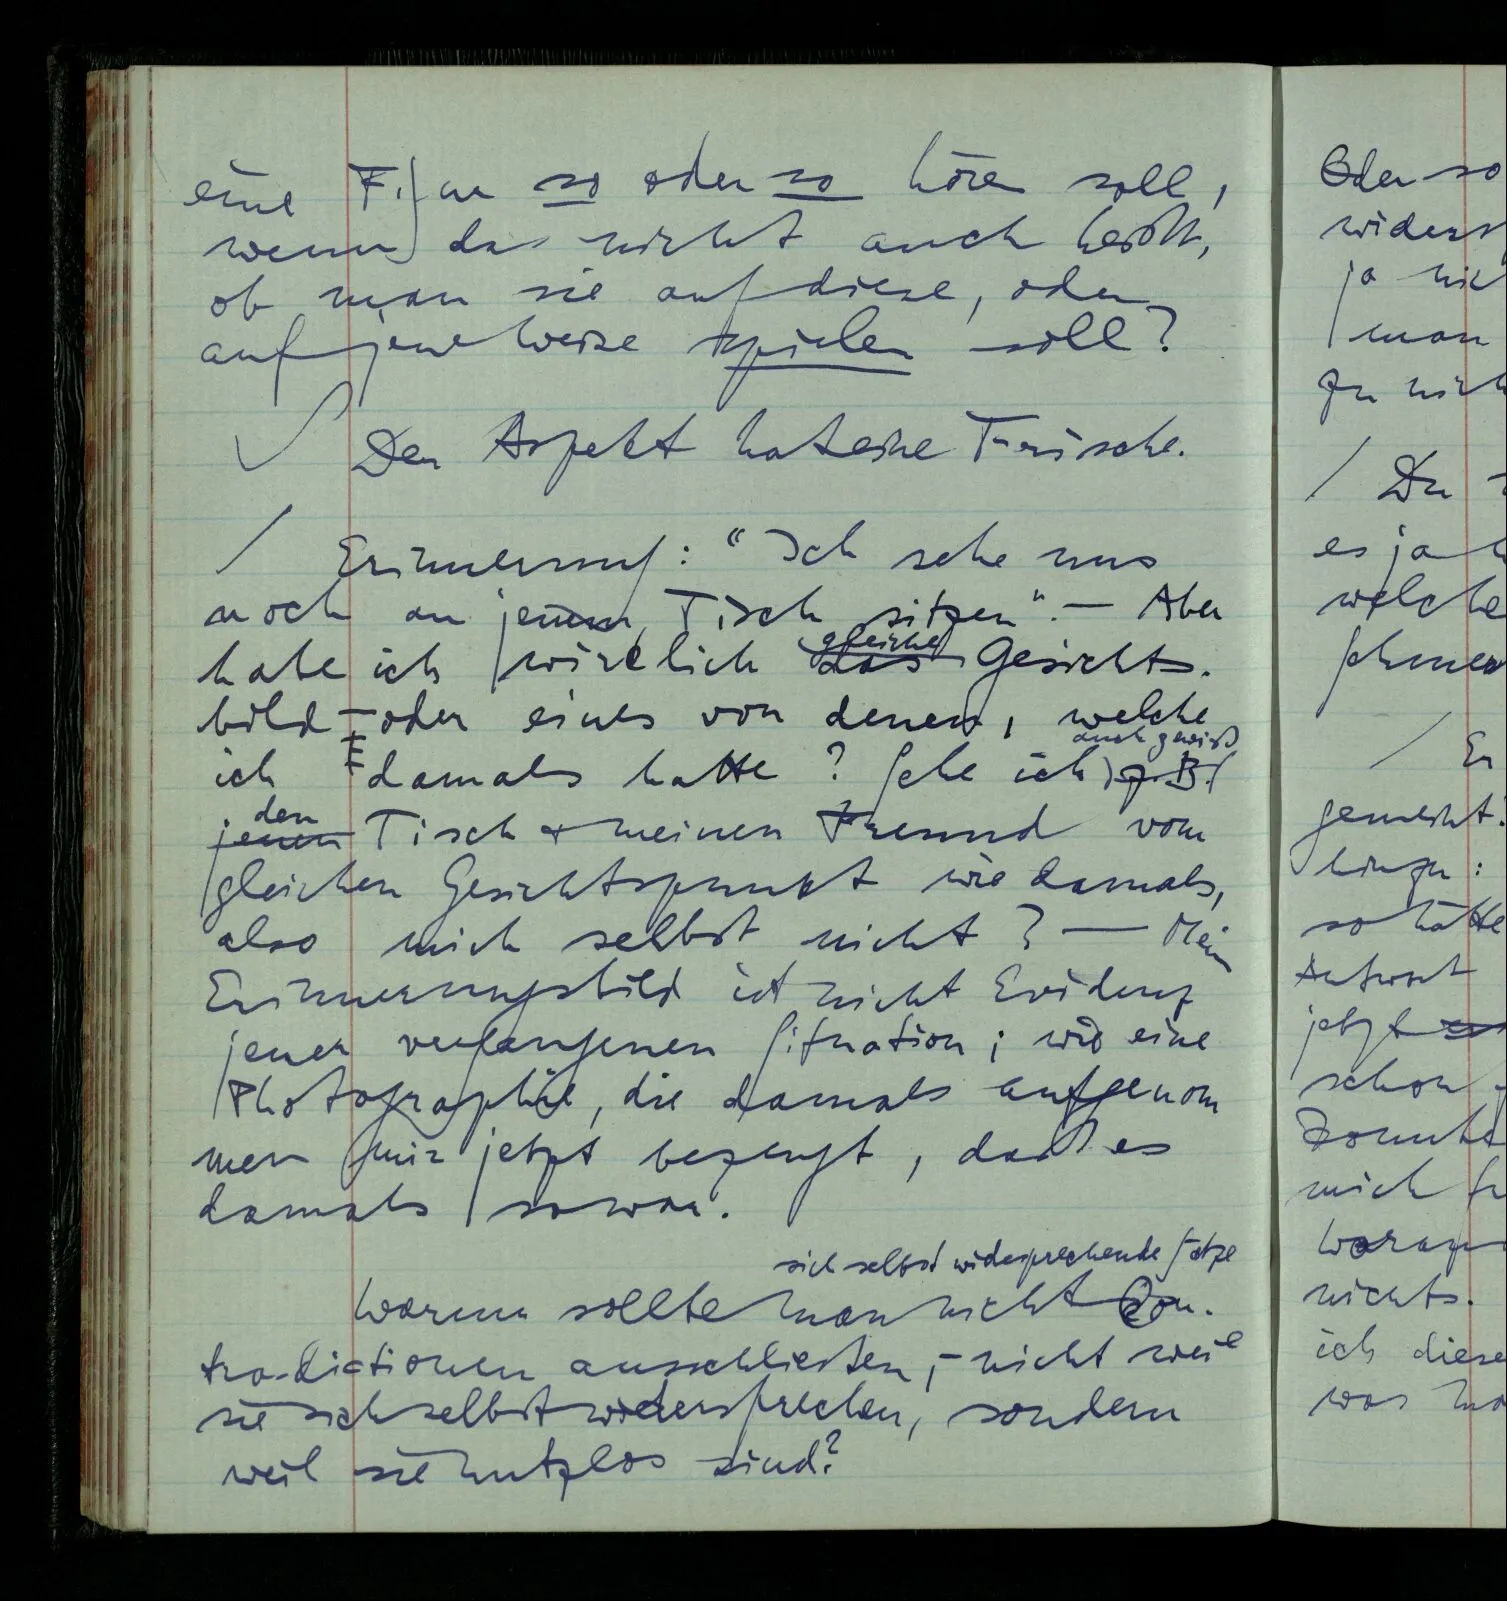 eine Figur so oder so hören soll,
wenn das nicht auch heißt,
ob man sie auf diese, oder
auf jene Weise spielen soll?
✓ Der Aspekt hat eine Frische.
/ Erinnerung: “Ich sehe uns
noch an jenem Tisch sitzen”. — Aber
habe ich wirklich das gleiche Gesichts-
bild – oder eines von denen, welche
ich damals hatte? Sehe ich z.B. auch gewiß
jenen den Tisch & meinen Freund vom
gleichen Gesichtspunkt wie damals,
also mich selbst nicht? — Mein
Erinnerungsbild ist nicht Evidenz
jener vergangenen Situation; wie eine
Photographie, die damals aufgenom
men mir jetzt bezeugt, daß es
damals so war.
sich selbst widersprechende Sätze
Warum sollte man nicht Con-
tradictionen ausschließen, – nicht weil
sie sich selbst widersprechen, sondern
weil sie nutzlos sind?
Oder so
widers
ja nic
man
zu nich
/ Du
es ja
welche
/ Er
gemeint:
hinzu:
so hätte
Antwort
jetzt
schon
konnte
mich
nichts.
ich diese
was